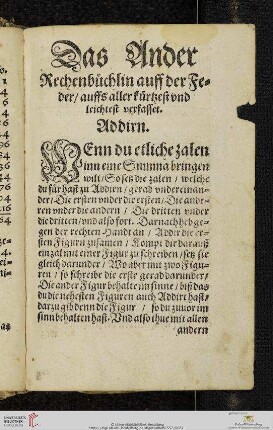 Das Ander
Rechenbüchlin auff der Fe-
der / auffs aller kürtzest vnd
leichtest verfasset.
Addirn.
WEnn du etliche zalen
inn eine Summa bringen
wilt / So setz die zalen / welche
du für hast zu Addirn / gerad vndereinan-
der / Die ersten vnder die ersten / Die andern
vnder die andern / Die dritten vnder
die dritten / vnd also fort. Darnach heb ge-
gen der rechten Handt an / Addir die er-
sten Figurn zusamen / Kompt dir darauß
ein zal mit einer Figur zu schreiben / setz sie
gleich darunder / Wo aber mit zwo Figu-
ren / so schreibe die erste gerad darunder /
Die ander Figur behalte im sinne / biß das
du die nehesten Figuren auch Addirt hast /
darzu gib denn die Figur / so du zuuor im
sinn behalten hast. Vnd also thue mit allen
andern